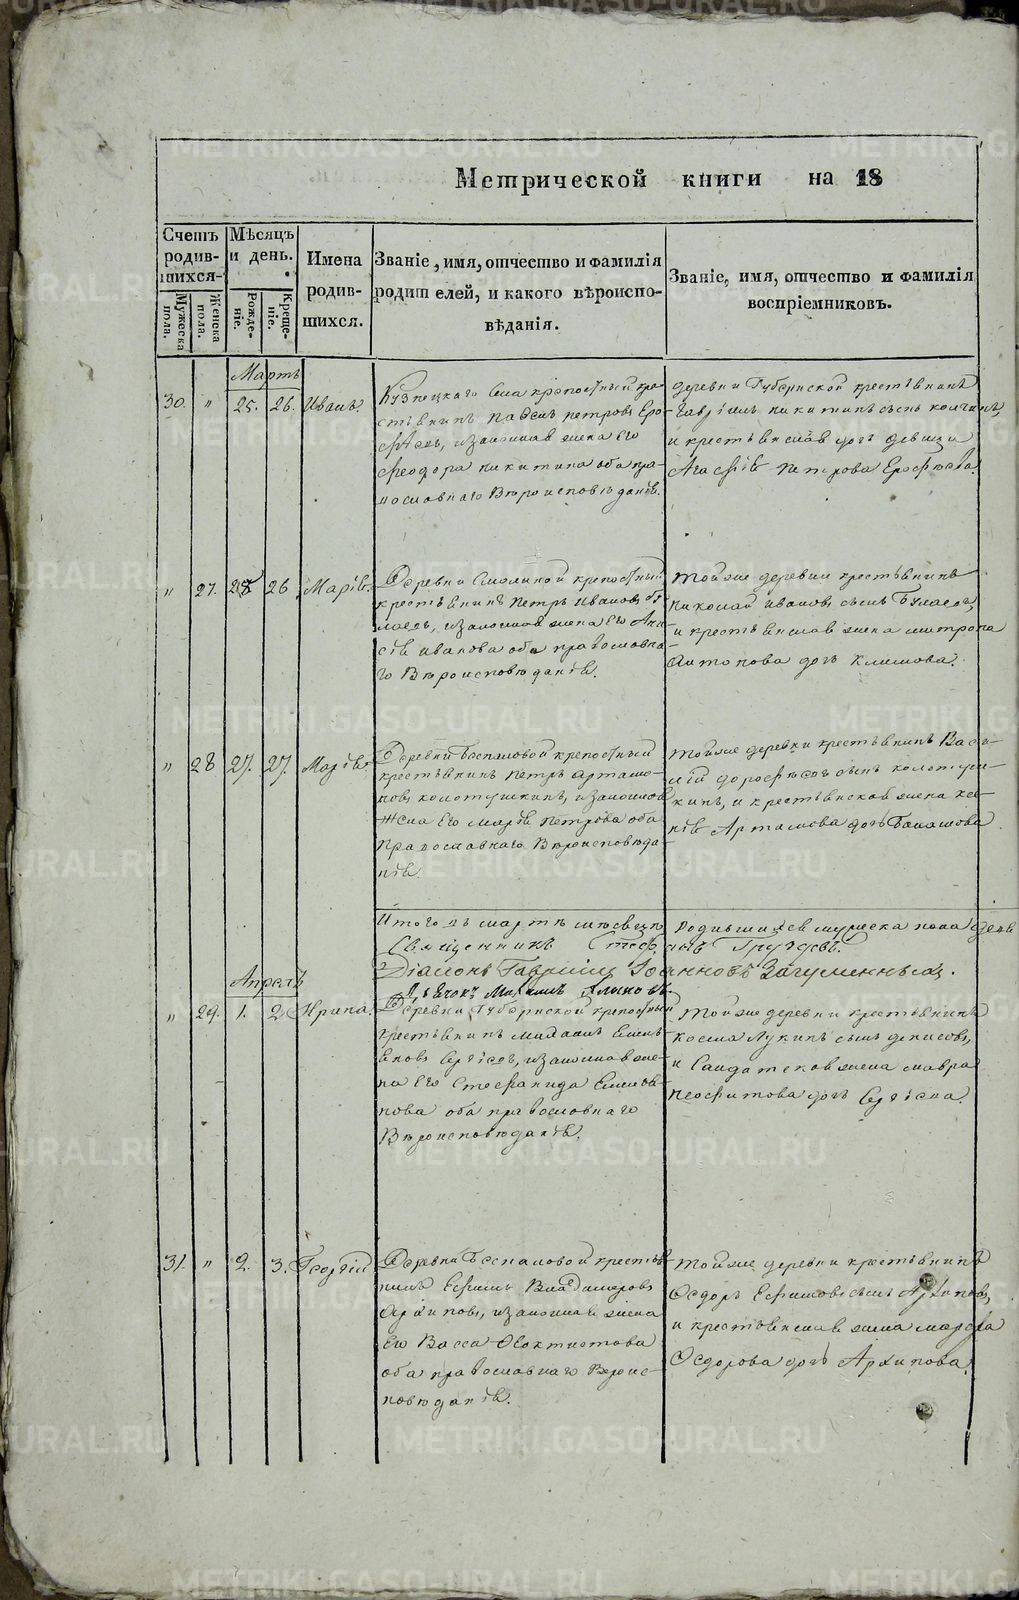 METRIKI.GASO-URAL.RU
Метрической книги на 18
Счетъ родив-шихся
Мужеска пола.
Женска пола.
Мѣсяцъ и день.
Рожде-ніе.
Креще-ніе.
Имена родив-шихся.
Званіе, имя, отчество и фамилія родителей, и какого вѣроиспо-вѣданія.
Званіе, имя, отчество и фамилія воспріемниковъ.
Мартъ
30. " 25. 26. Иванъ.
Кузнецкаго села крепостный кре-
стьянинъ Павелъ Петровъ Еро-
фѣевъ, и законная жена его
Феодора Никитина оба пра-
вославнаго Вѣроисповѣданія.
деревни Губернской крестьянинъ
Гаврилъ Никитинъ сынъ
и крестьянская дочь девица
Агафія Петрова Ерофѣева.
" 27. 26 Марія.
Деревни Смолиной крепостный
крестьянинъ Петръ Ивановъ
и законная жена его
Иванова оба православна-
го Вѣроисповѣданія.
Тойже деревни крестьянинъ
Николай Ивановъ сынъ
и крестьянская жена Митрона
Антонова дочь Климова.
" 28 27. 27. Марія.
Деревни крепостный
крестьянинъ Петръ Артамо-
новъ Колотушкинъ, и законная
жена его Марія Петрова оба
Православнаго Вѣроисповѣда-
нія.
Тойже деревни крестьянинъ Васи-
лій Дорофѣевъ сынъ Колотуш-
кинъ, и крестьянская жена Ксе-
нія Артамова дочь
Итого въ мартѣ мѣсяцѣ родившихся мужеска пола
Священникъ Стефанъ Груздевъ.
Діаконъ Гавриилъ Іоанновъ Загуменныхъ.
Дьячокъ
Апрель
" 29. 1. 2. Ирина.
Деревни Губернской крепостный
крестьянинъ
и законная же-
на его Стефанида
оба православнаго
Вѣроисповѣданія.
Тойже деревни крестьянинъ
Косма Лукинъ сынъ Денисовъ,
и Салдатская жена Мавра
Неофитова дочь
31. " 2. 3. Георгій
Деревни Беспаловой крестья-
нинъ Ефимъ Владимеровъ
Архиповъ, и законная жена
его Васса Феоктистова
оба православнаго Вѣроис-
повѣданія.
Тойже деревни крестьянинъ
Федоръ Ефимовъ сынъ Архиповъ,
и крестьянская жена Марфа
Федорова дочь Архипова.